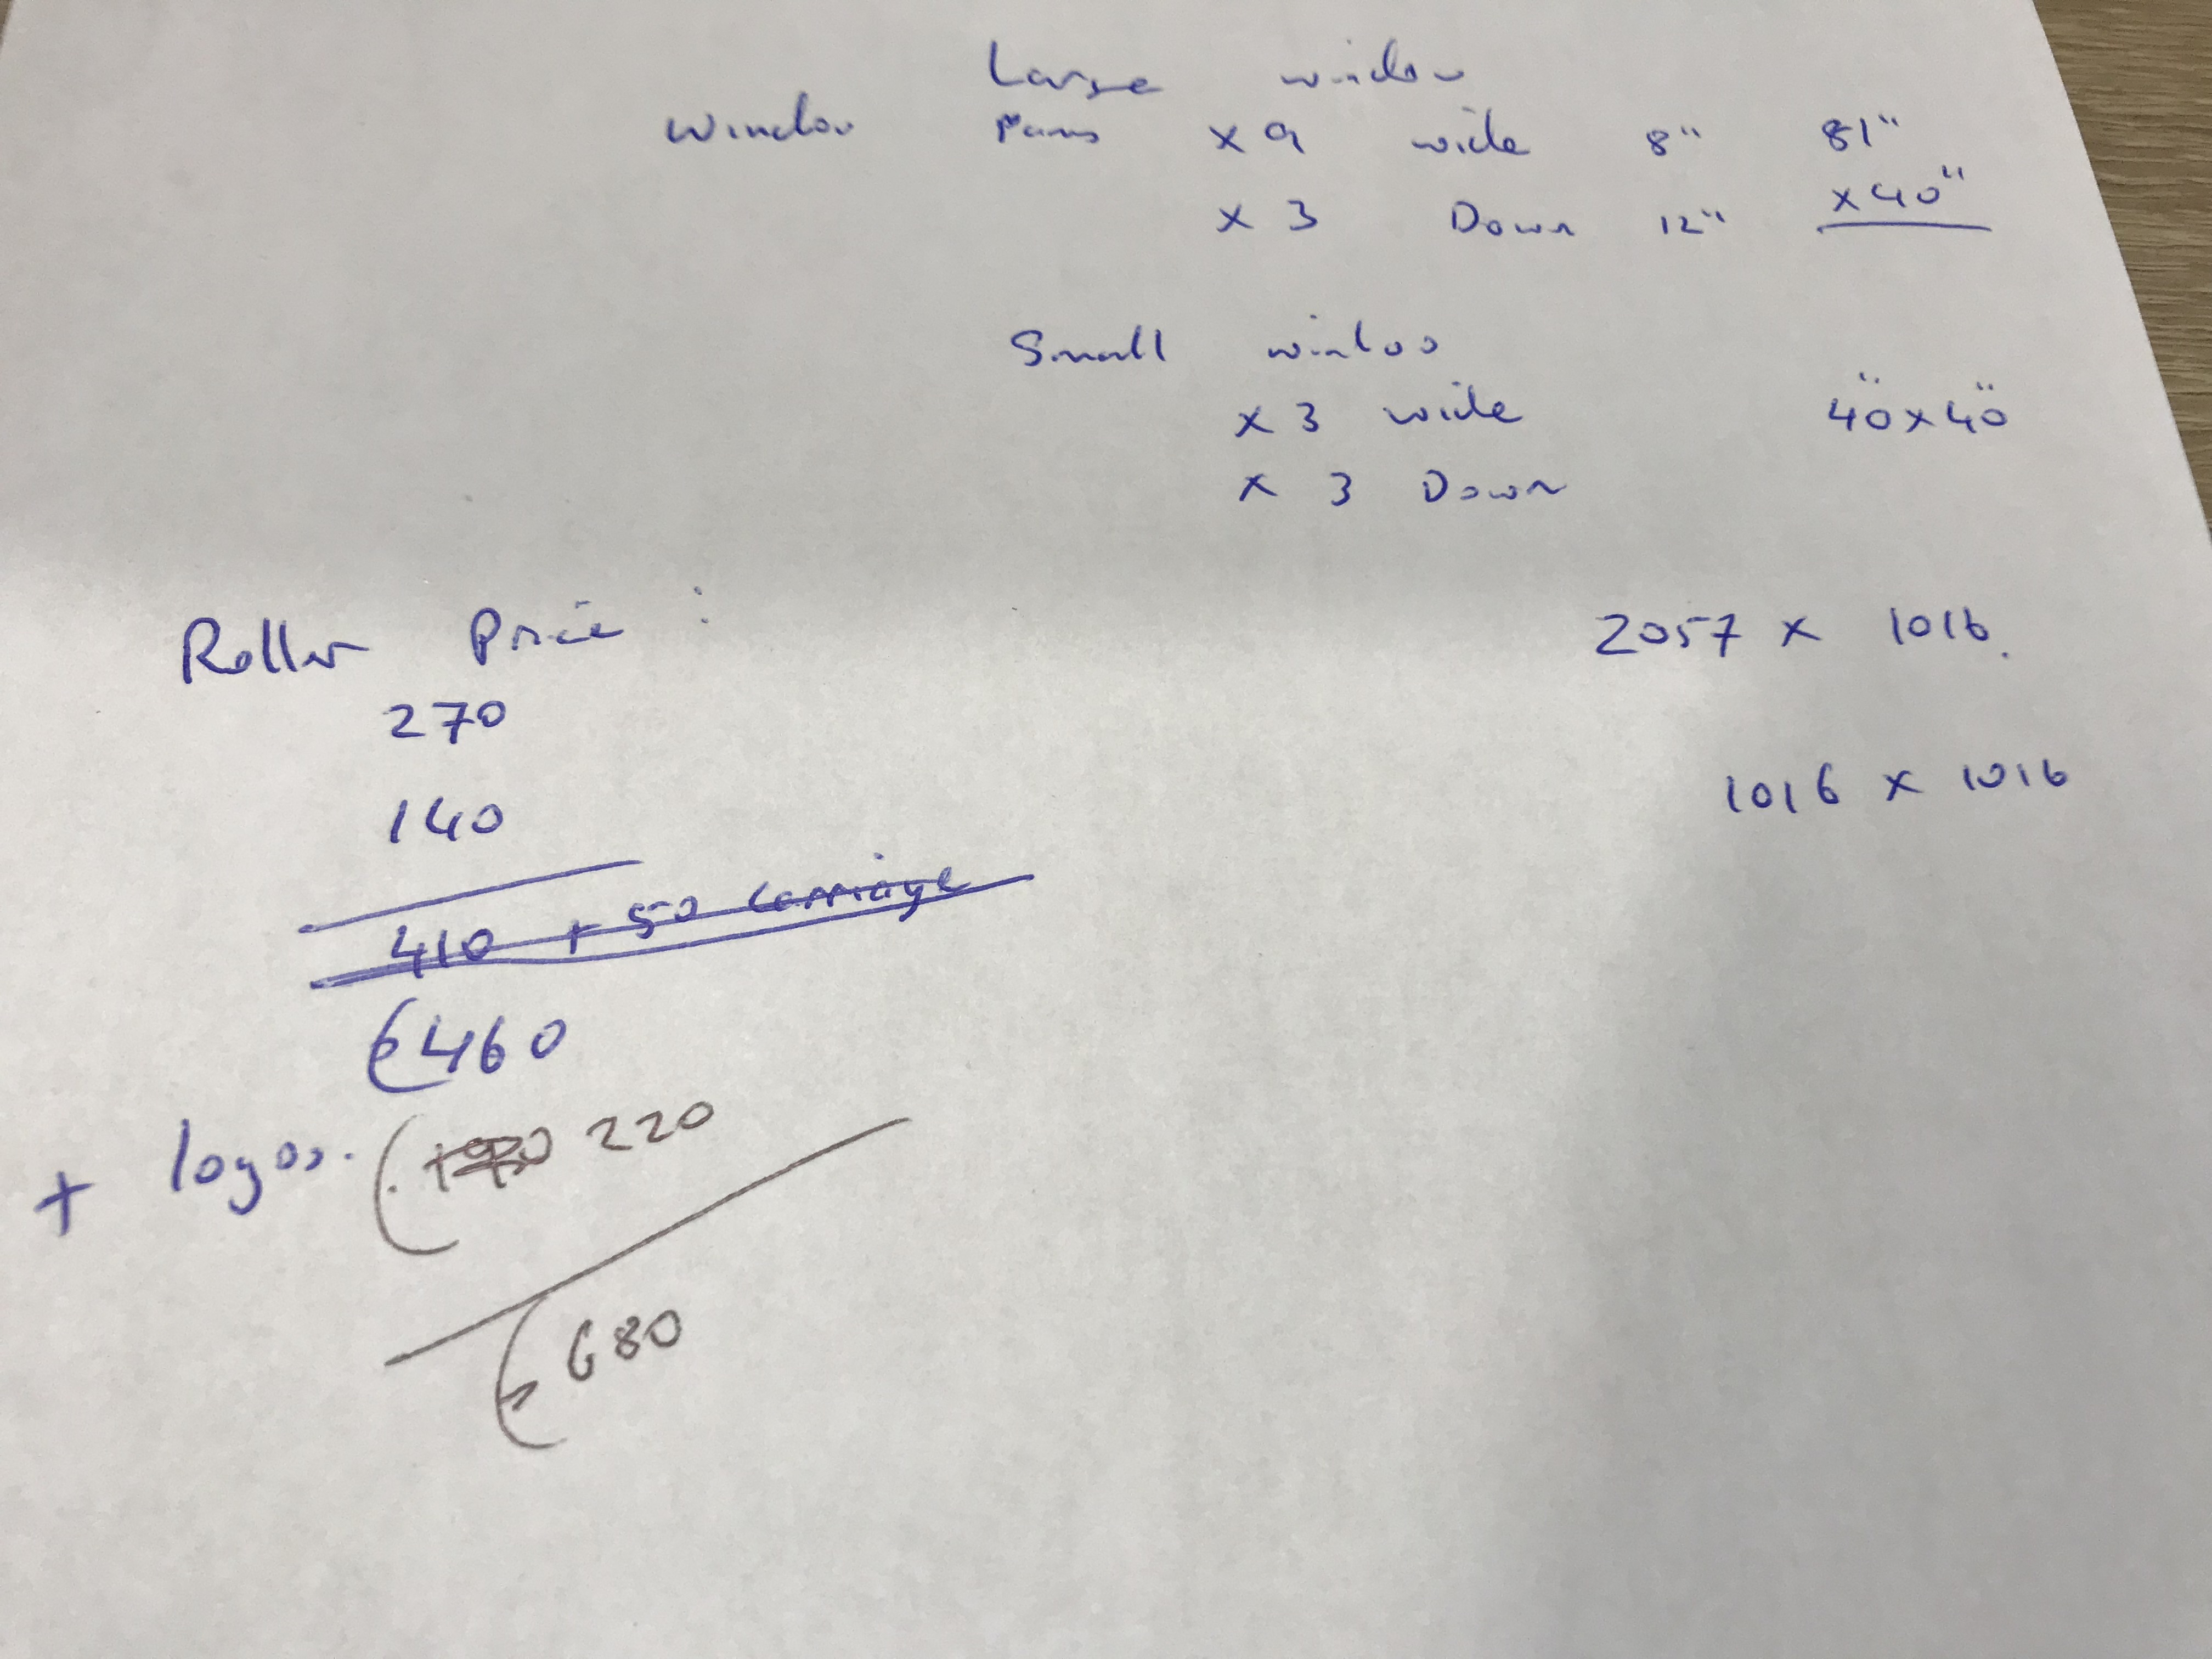 Large window
Window Panes x 9 wide 8" 81"
x 3 Down 12" x 40"
Small window
x 3 wide 40" x 40"
x 3 Down
Roller Price :
2057 x 1016.
270
1016 x 1016
140
410 + 50 carriage
£460
+ logos. 220
£680